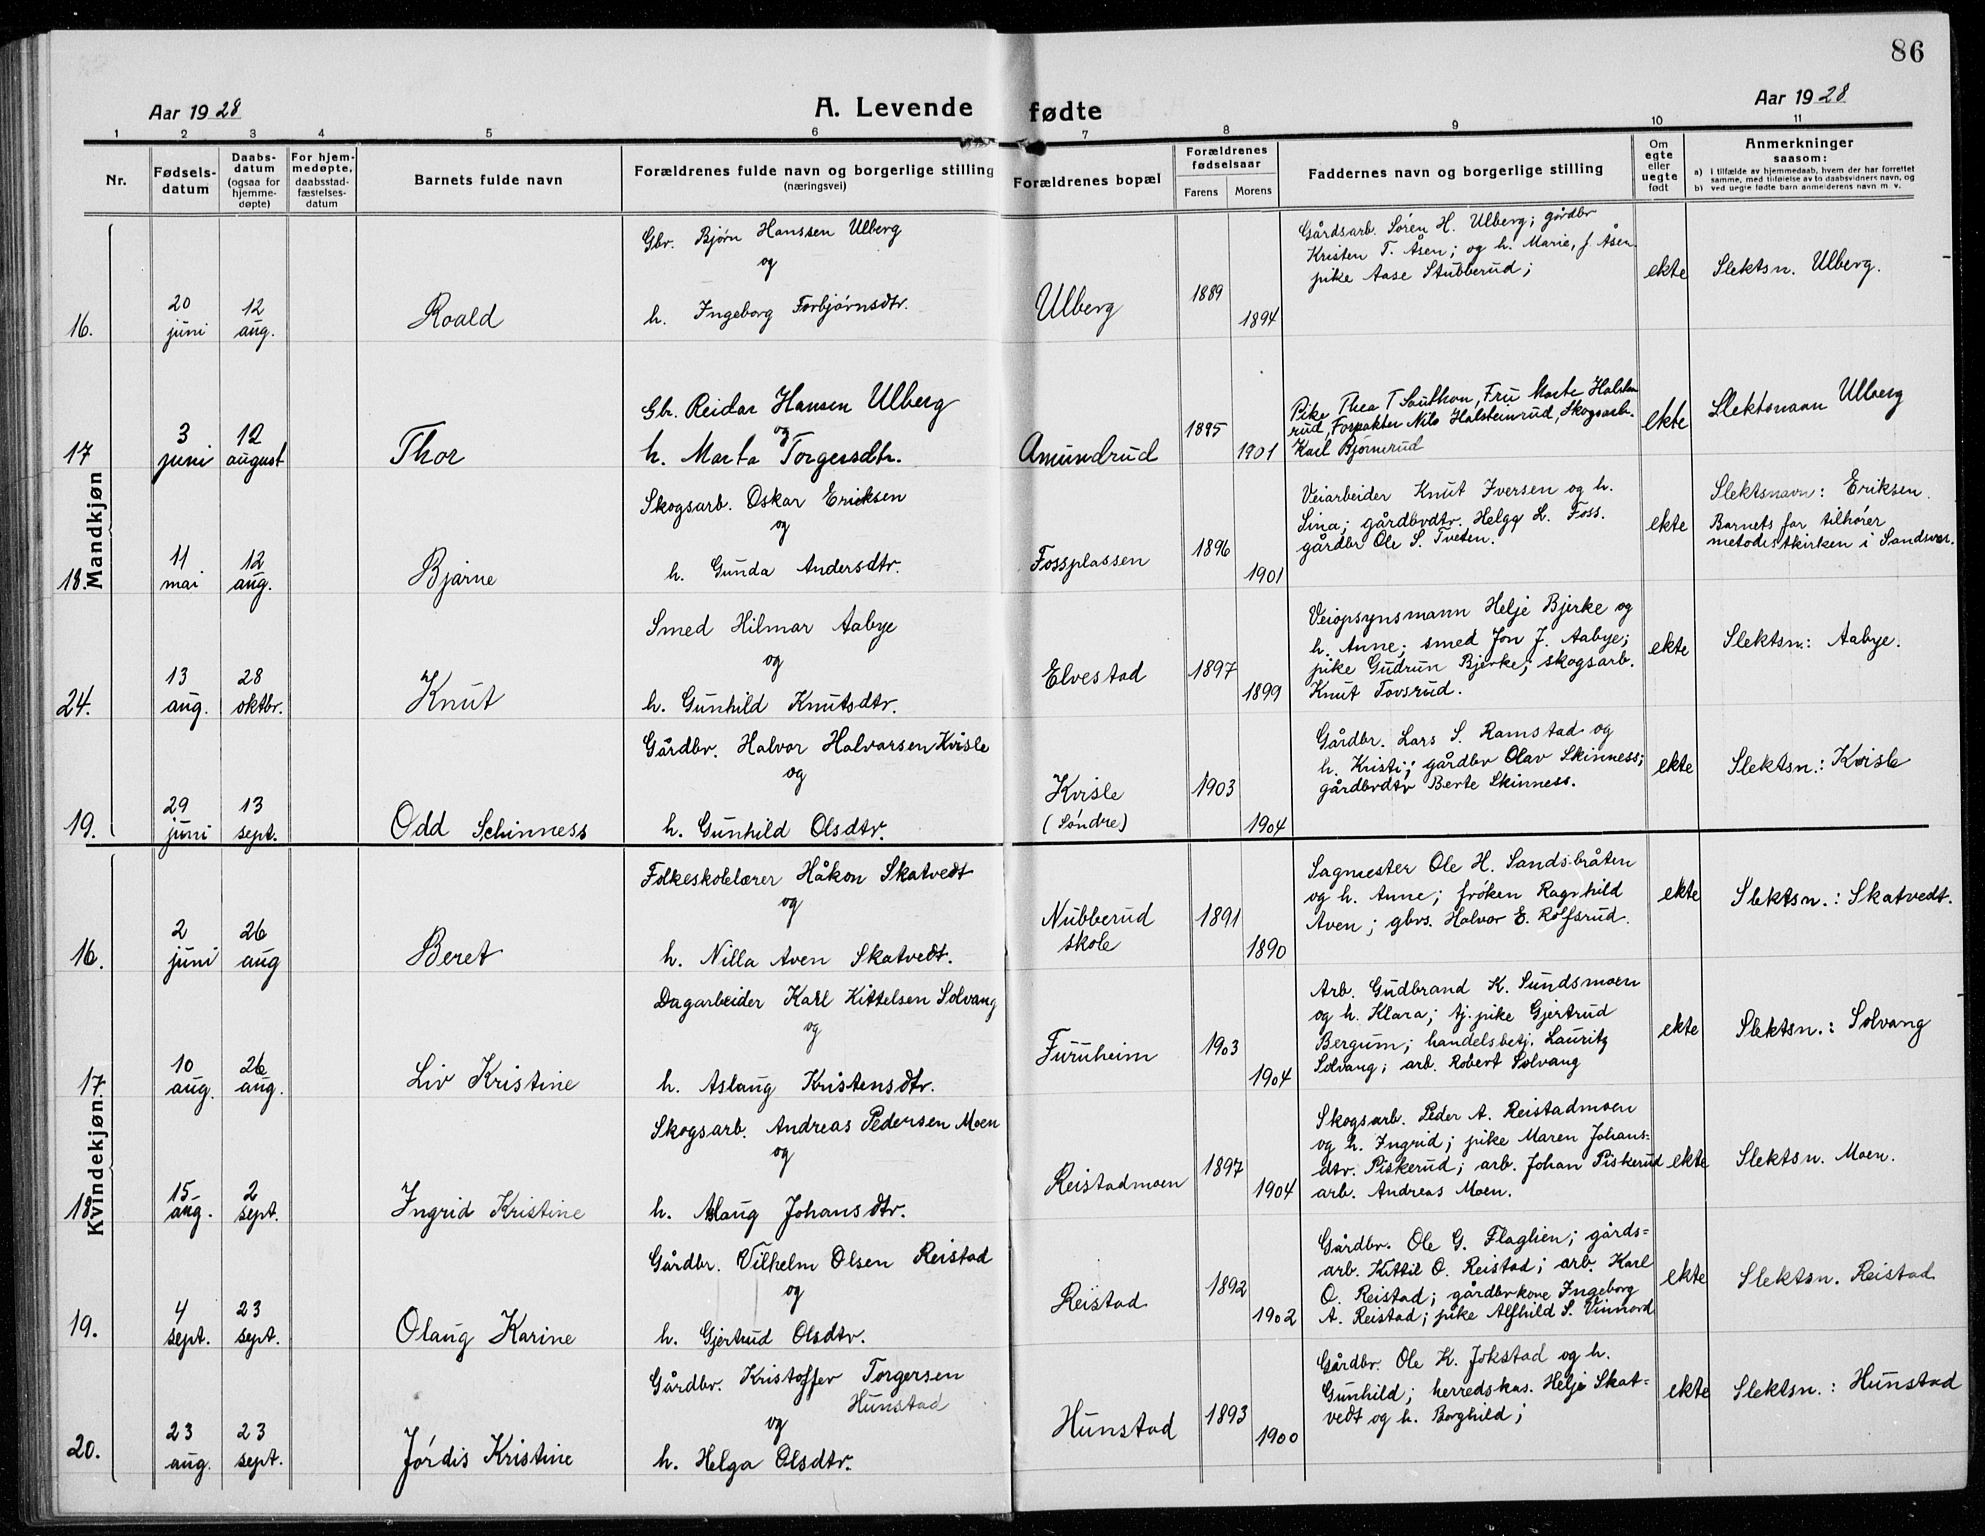 86
Aar 1928
A. Levende fødte
Aar 1928
1 2 3 4 5 6 7 8 9 10 11
Nr.
Fødsels-
datum
Daabs-
datum
(ogsaa for
hjemme-
døpte)
For hjem-
medøpte,
daabsstad-
fæstelses-
datum
Barnets fulde navn
Forældrenes fulde navn og borgerlige stilling
(næringsvei)
Forældrenes bopæl
Forældrenes
fødselsaar
Farens Morens
Faddernes navn og borgerlige stilling
Om
egte
eller
uegte
født
Anmerkninger
saasom:
a) I tilfælde av hjemmedaab, hvem der har forrettet
samme, med tilføielse av to daabsvidners navn, og
b) ved uegte fødte barn anmelderens navn m. v.
Mandkjøn
16.
20
juni
12
aug.
Roald
Gbr. Bjørn Hanssen Ulberg
og
h. Ingeborg Torbjørnsdtr.
Ulberg
1889
1894
Gårdsarb. Søren H. Ulberg; gårdbr
Kristen T. Åsen; og h. Marie, f. Åsen
pike Aase Stubberud;
ekte
Slektsn. Ulberg.
17
3
juni
12
august
Thor
Gbr. Reidar Hansen Ulberg
og
h. Marta Torgersdtr.
Amundrud
1895
1901
Pike Thea T. Fru Marte Halstein
rud, Forpakter Nils Halsteinrud, Skogsarb.
Karl Bjørnerud
ekte
Slektsnavn Ulberg
18.
11
mai
12
aug.
Bjarne
Skogsarb. Oskar Eriksen
og
h. Gunda Andersdtr.
Fossplassen
1896
1901
Veiarbeider Knut Iversen og h.
Sina; gårdbrdtr. Helga L. Foss.
gårdbr Ole S. Tveten.
ekte
Slektsnavn: Eriksen.
Barnets far tilhører
metodistkirken i Sandsvær.
24.
13
aug.
28
oktbr.
Knut
Smed Hilmar Aabye
og
h. Gunhild Knutsdtr.
Elvestad
1897
1899
Veiopsynsmann Helje Bjerke og
h. Anne; smed Jon J. Aabye;
pike Gudrun Bjerke; skogsarb.
Knut Tovsrud.
ekte
Slektsn.: Aabye.
19.
29
juni
13
sept.
Odd Schinness
Gårdbr. Halvor Halvorsen Kvisle
og
h. Gunhild Olsdtr.
Kvisle
(Søndre)
1903
1904
Gårdbr. Lars S. Ramstad og
h. Kristi; gårdbr Olav Skinness;
gårdbrdtr Berte Skinness.
ekte
Slektsn.: Kvisle
Kvindekjøn.
16.
2
juni
26
aug
Beret
Folkeskolelærer Håkon Skatvedt
og
h. Nilla Aven Skatvedt.
Nubberud
skole
1891
1890
Sagmester Ole H. Sandsbråten
og h. Anne; frøken Ragnhild
Aven; gbrs. Halvor E. Rolfsrud.
ekte
Slektsn.: Skatvedt.
17
10
aug.
26
aug.
Liv Kristine
Dagarbeider Karl Kittelsen Solvang
og
h. Aslaug Kristensdtr.
Furuheim
1903
1904
Arb. Gudbrand K. Sundsmoen
og h. Klara; tj. pike Gjertrud
Bergum; handelsbetj. Lauritz
Solvang; arb. Robert Solvang
ekte
Slektsn.: Solvang
18.
15
aug.
2
sept.
Ingrid Kristine
Skogsarb. Andreas Pedersen Moen
og
h. Aslaug Johansdtr.
Reistadmoen
1897
1904
Skogsarb. Peder A. Reistadmoen
og h. Ingrid; pike Maren Johans=
dtr. Piskerud; arb. Johan Piskerud
arb. Andreas Moen.
ekte
Slektsn. Moen.
19.
4
sept.
23
sept.
Olaug Karine
Gårdbr. Vilhelm Olsen Reistad
og
h. Gjertrud Olsdtr.
Reistad
1892
1902
Gårdbr. Ole G. Flaglien; gårds=
arb. Kittil O. Reistad; arb. Karl
O. Reistad; gårdbrkone Ingeborg
A. Reistad; pike Alfhild S. Vinnord
ekte
Slektsn. Reistad
20.
23
aug.
23
sept.
Jørdis Kristine
Gårdbr. Kristoffer Torgersen
Hunstad
og
h. Helga Olsdtr.
Hunstad
1893
1900
Gårdbr. Ole K. Jokstad og h.
Gunhild; herredskas. Helje Skat=
vedt og h. Borghild;
ekte
Slektsn.: Hunstad